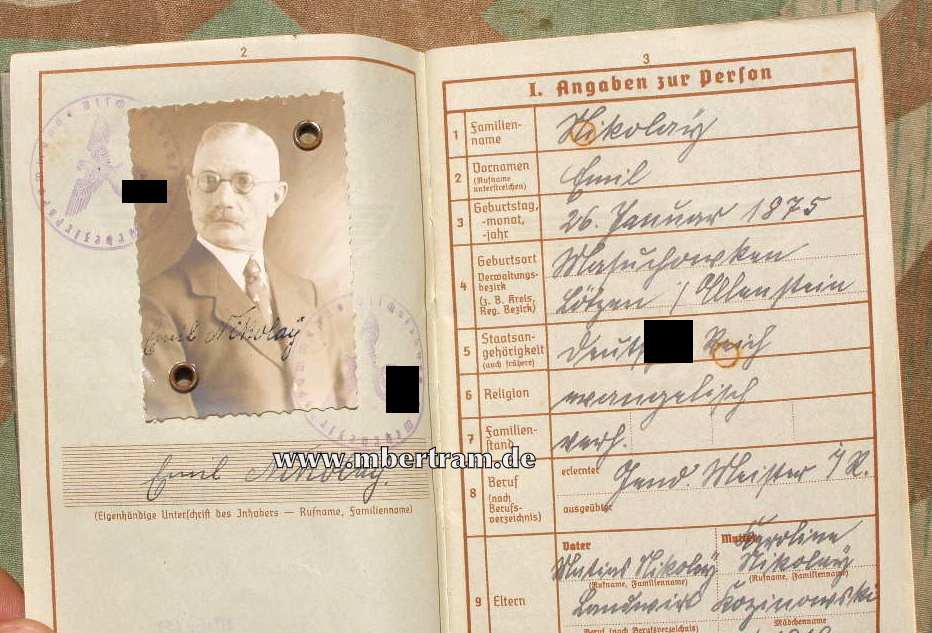 2
Emil Nikolaÿ
www.mbertram.de
Emil Nikolaÿ.
(Eigenhändige Unterschrift des Inhabers — Rufname, Familienname)
3
I. Angaben zur Person
1 Familien-
name
Nikolaÿ
2 Vornamen
(Rufname
unterstreichen)
Emil
3 Geburtstag,
-monat,
-jahr
26. Januar 1875
4 Geburtsort
Verwaltungs-
bezirk
(z. B. Kreis,
Reg. Bezirk)
Masuchowken
Lötzen / Allenstein
5 Staatsan-
gehörigkeit
(auch frühere)
Reich
6 Religion
evangelisch
7 Familien-
stand
verh.
8 Beruf
(nach
Berufs-
verzeichnis)
erlernter
Gend. Meister i/R.
ausgeübter
9 Eltern
Vater
Matias Nikolaÿ
(Rufname, Familienname)
Landwirt
Beruf (nach Berufsverzeichnis)
Mutter
Karoline
Nikolaÿ
(Rufname, Familienname)
Kozinowski
Mädchenname